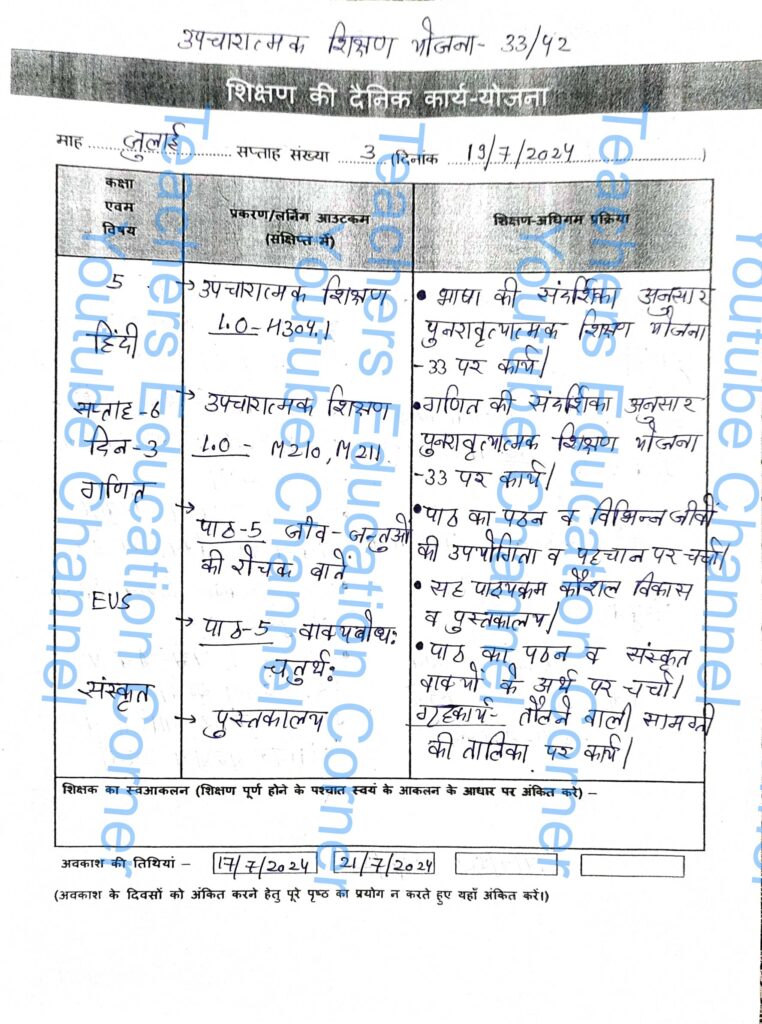 उपचारात्मक शिक्षण योजना- 33/42
शिक्षण की दैनिक कार्य-योजना
माह जुलाई सप्ताह संख्या 3 (दिनांक 19/7/2024)
कक्षा
एवम
विषय
प्रकरण/लर्निंग आउटकम
(संक्षिप्त में)
शिक्षण-अधिगम प्रक्रिया
5
हिंदी
सप्ताह-6
दिन-3
गणित
EVS
संस्कृत
→ उपचारात्मक शिक्षण
L.O-H304.1
→ उपचारात्मक शिक्षण
L.O- M210, M211
→ पाठ-5 जीव-जन्तुओं
की रोचक बातें
→ पाठ-5 वाक्यबोधः
चतुर्थः
→ पुस्तकालय
• भाषा की संदर्शिका अनुसार
पुनरावृत्यात्मक शिक्षण योजना
-33 पर कार्य।
• गणित की संदर्शिका अनुसार
पुनरावृत्यात्मक शिक्षण योजना
-33 पर कार्य।
• पाठ का पठन व विभिन्न जीवों
की उपयोगिता व पहचान पर चर्चा।
• सह पाठ्यक्रम कौशल विकास
व पुस्तकालय।
• पाठ का पठन व संस्कृत
वाक्यों के अर्थ पर चर्चा।
गृहकार्य- तौलने वाली सामग्री
की तालिका पर कार्य।
शिक्षक का स्वआकलन (शिक्षण पूर्ण होने के पश्चात स्वयं के आकलन के आधार पर अंकित करे) –
अवकाश की तिथियां – 17/7/2024 21/7/2024
(अवकाश के दिवसों को अंकित करने हेतु पूरे पृष्ठ का प्रयोग न करते हुए यहाँ अंकित करें।)
Teachers Education Corner
Youtube Channel
Teachers Education Corner
Youtube Channel
Youtube Channel